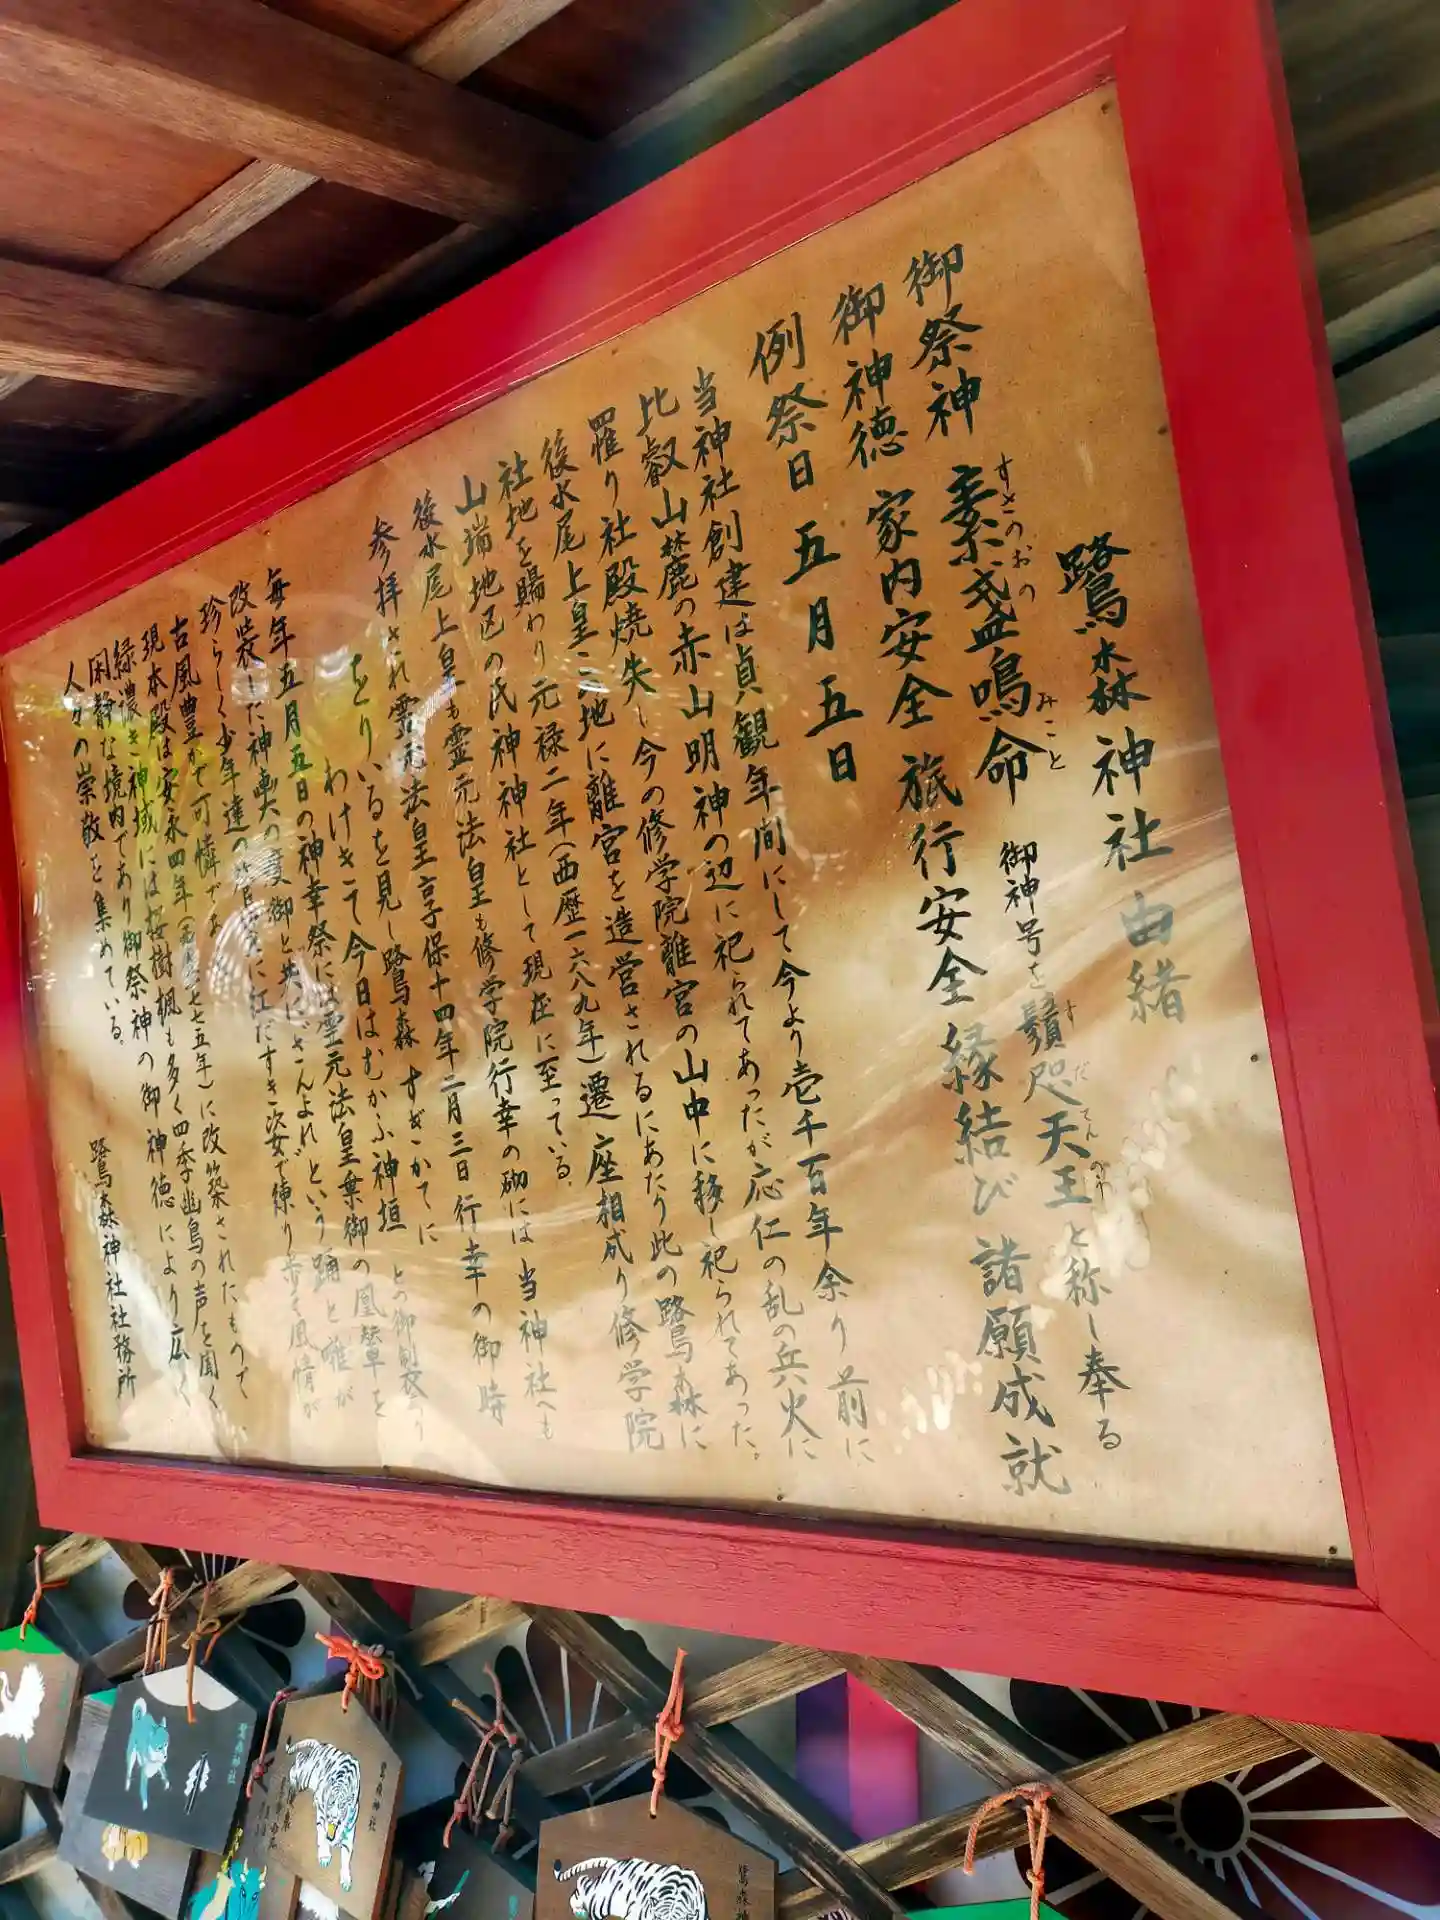 鷺森神社由緒
御祭神 素戔嗚命 御神号を鬚咫天王と称し奉る
すさのおの みこと すだてんのう
御神徳 家内安全 旅行安全 縁結び 諸願成就
例祭日 五月五日
当神社創建は貞観年間にして今より壱千百年余り前に
比叡山麓の赤山明神の辺に祀られてあったが応仁の乱の兵火に
罹り社殿焼失し今の修学院離宮の山中に移し祀られてあった。
後水尾上皇この地に離宮を造営されるにあたり此の鷺森に
社地を賜わり元禄二年(西歴一六八九年)遷座相成り修学院
山端地区の氏神神社として現在に至っている。
後水尾上皇も霊元法皇も修学院行幸の砌には当神社へも
参拝され霊元法皇享保十四年二月三日行幸の御時
をりいるを見し鷺森 すぎかてに
わけきて今日はむかふ神垣 との御製衣あり
毎年五月五日の神幸祭には霊元法皇棄御の鳳輦を
改装した神輿の渡御と共にさんよれという踊と唯が
珍らしく少年達の菅笠に紅だすき姿で練り歩く風情が
古風豊かで可憐であ
現本殿は安永四年(西歴一七七五年)に改築されたもので
緑濃き神域には桜樹楓も多く四季幽鳥の声を聞く
閑静な境内であり御祭神の御神徳により広く
人々の崇敬を集めている。
鷺森神社社務所
鷺森神社
鷺森神社